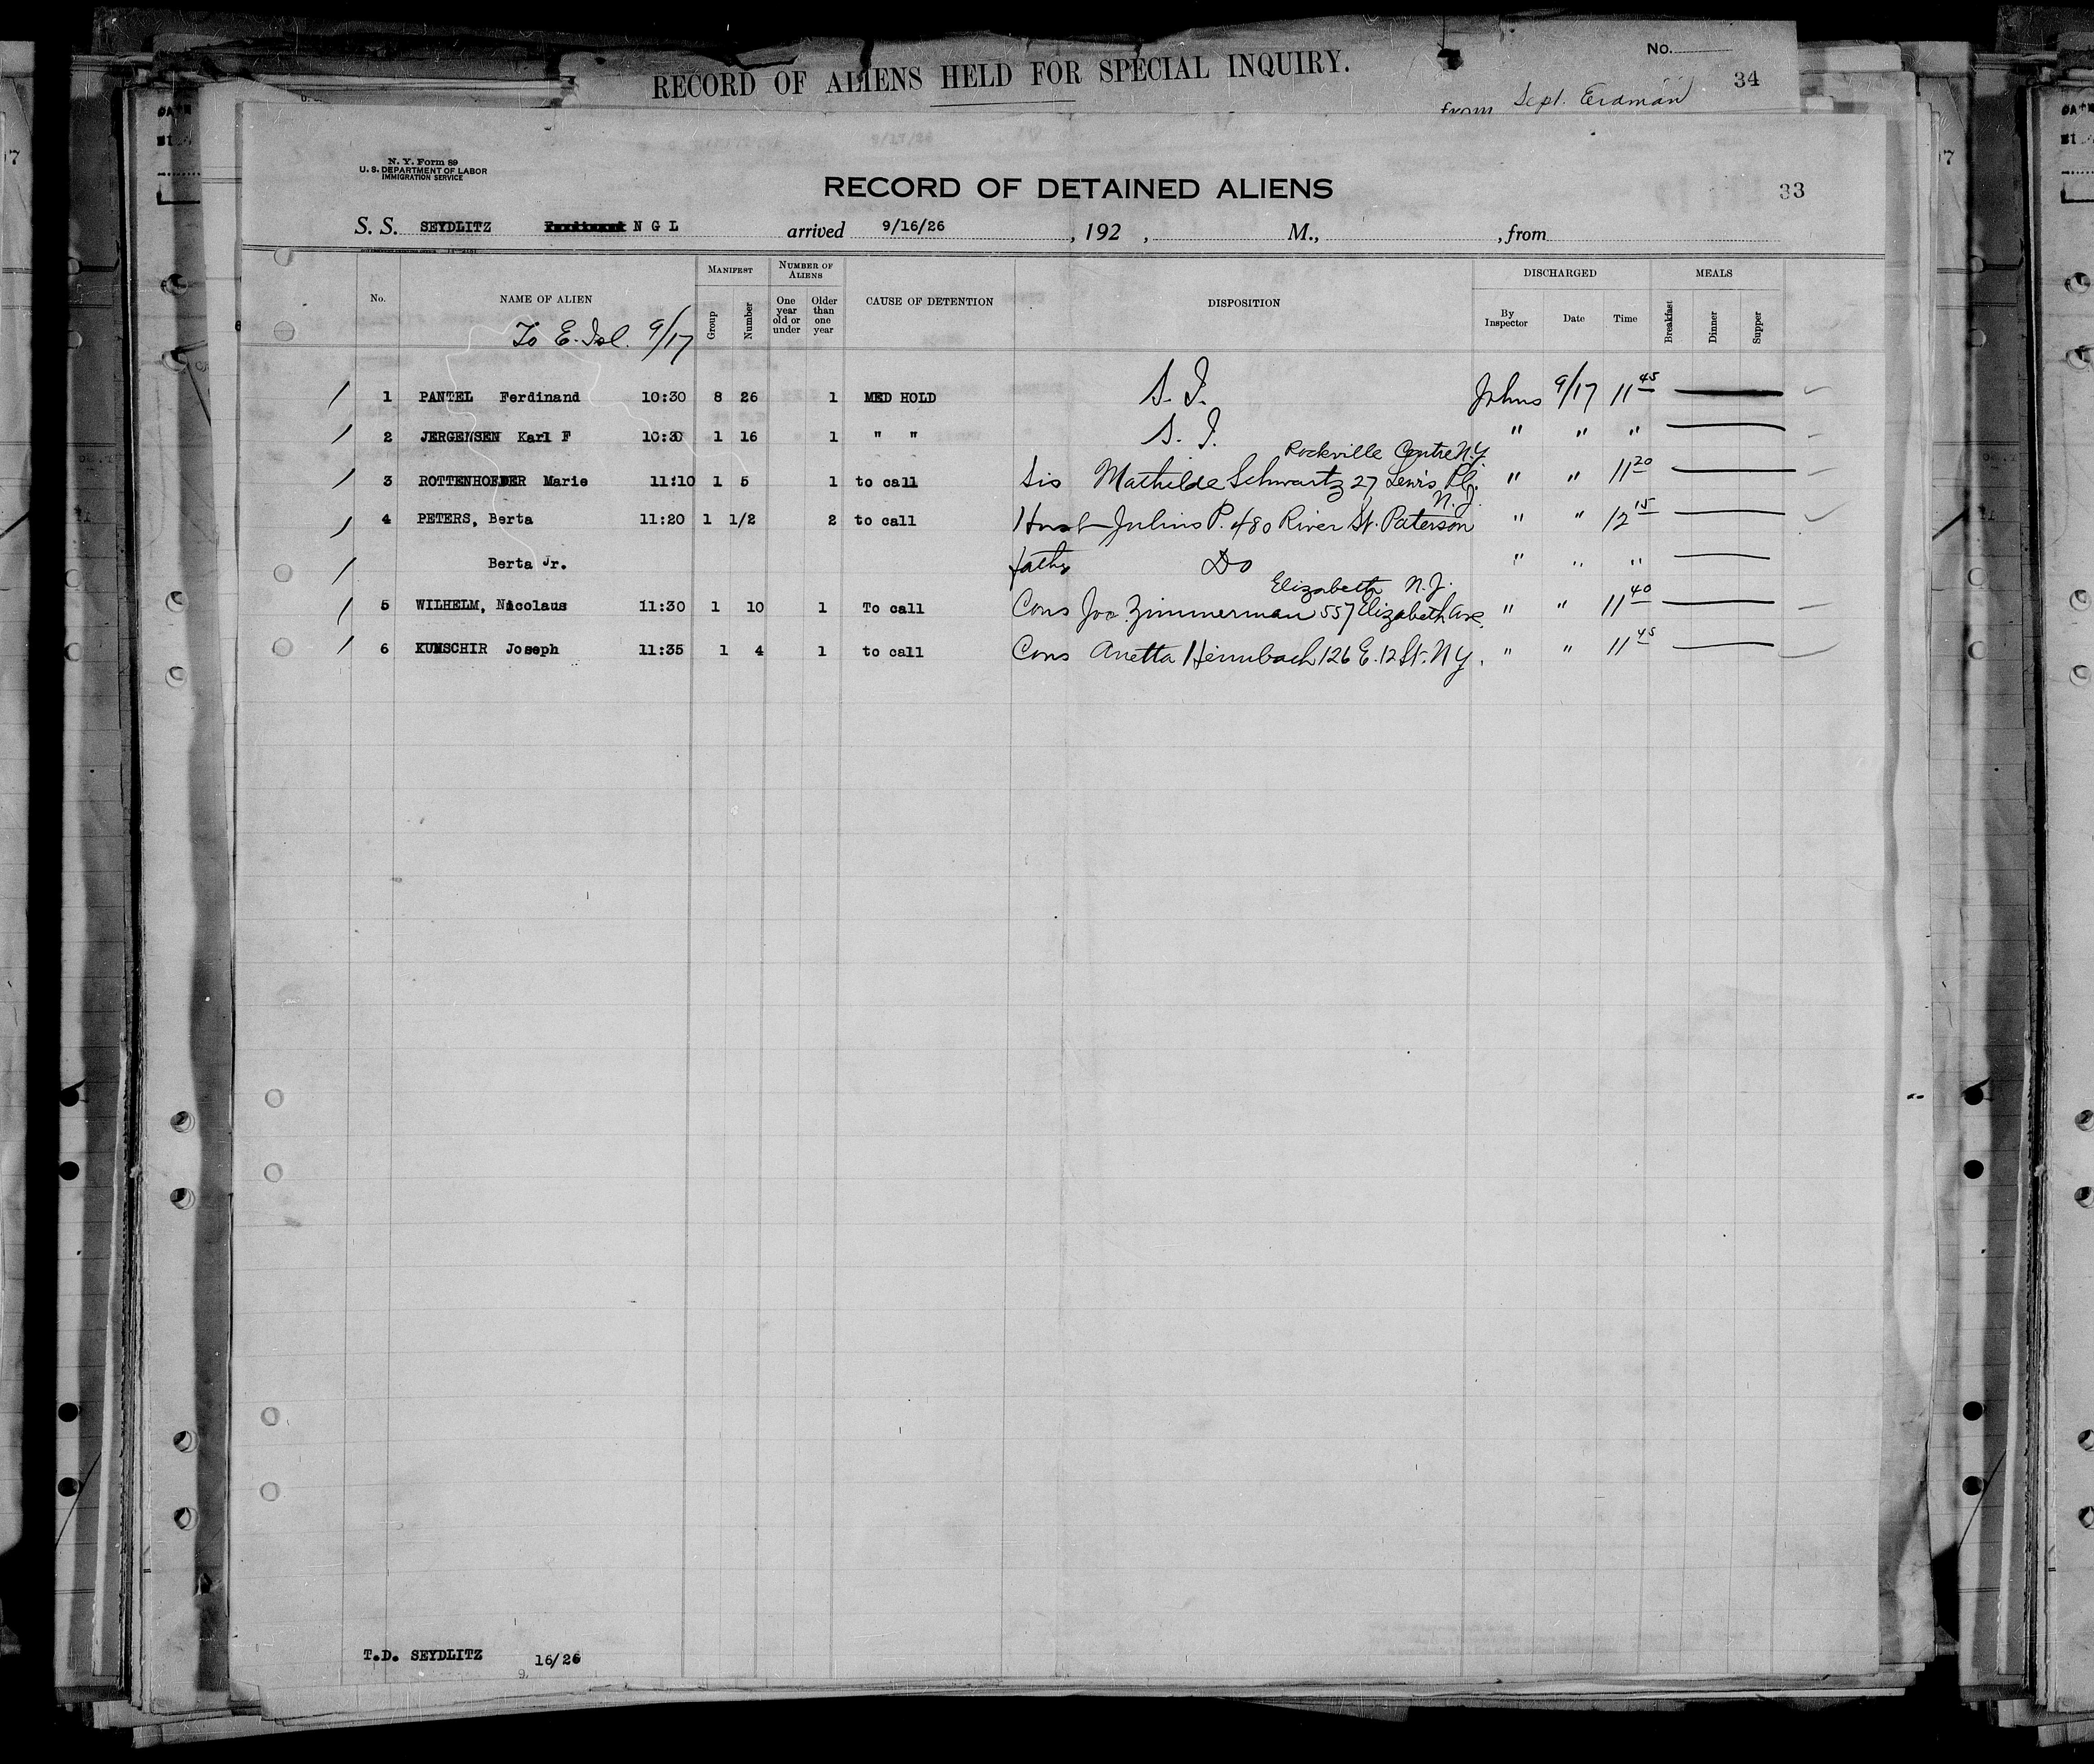 No.
34
RECORD OF ALIENS HELD FOR SPECIAL INQUIRY.
from Sept. Erdman
N. Y. Form 89
U. S. DEPARTMENT OF LABOR
IMMIGRATION SERVICE
RECORD OF DETAINED ALIENS
33
S. S. SEYDLITZ N G L arrived 9/16/26 , 192 , M., , from
No. NAME OF ALIEN MANIFEST Group Number NUMBER OF ALIENS One year old or under Older than one year CAUSE OF DETENTION DISPOSITION DISCHARGED By Inspector Date Time MEALS Breakfast Dinner Supper
To E. Isl. 9/17
1 PANTEL Ferdinand 10:30 8 26 1 MED HOLD S. I. Johns 9/17 11 45
2 JERGENSEN Karl F 10:30 1 16 1 " " S. I. " " "
Rockville Centre N.Y
3 ROTTENHOFDER Marie 11:10 1 5 1 to call Sis Mathilde Schwartz 27 Lewis Pl. " " 11 20
N. J.
4 PETERS, Berta 11:20 1 1/2 2 to call Husb Julius P. 480 River St. Paterson " " 12 15
Berta Jr. father Do " " "
Elizabeth N. J.
5 WILHELM, Nicolaus 11:30 1 10 1 To call Cous Jos. Zimmerman 557 Elizabeth Ave. " " 11 40
6 KUMSCHIR Joseph 11:35 1 4 1 to call Cous Anetta 126 E. 12 St. N Y. " " 11 45
T.D. SEYDLITZ 9. 16/26